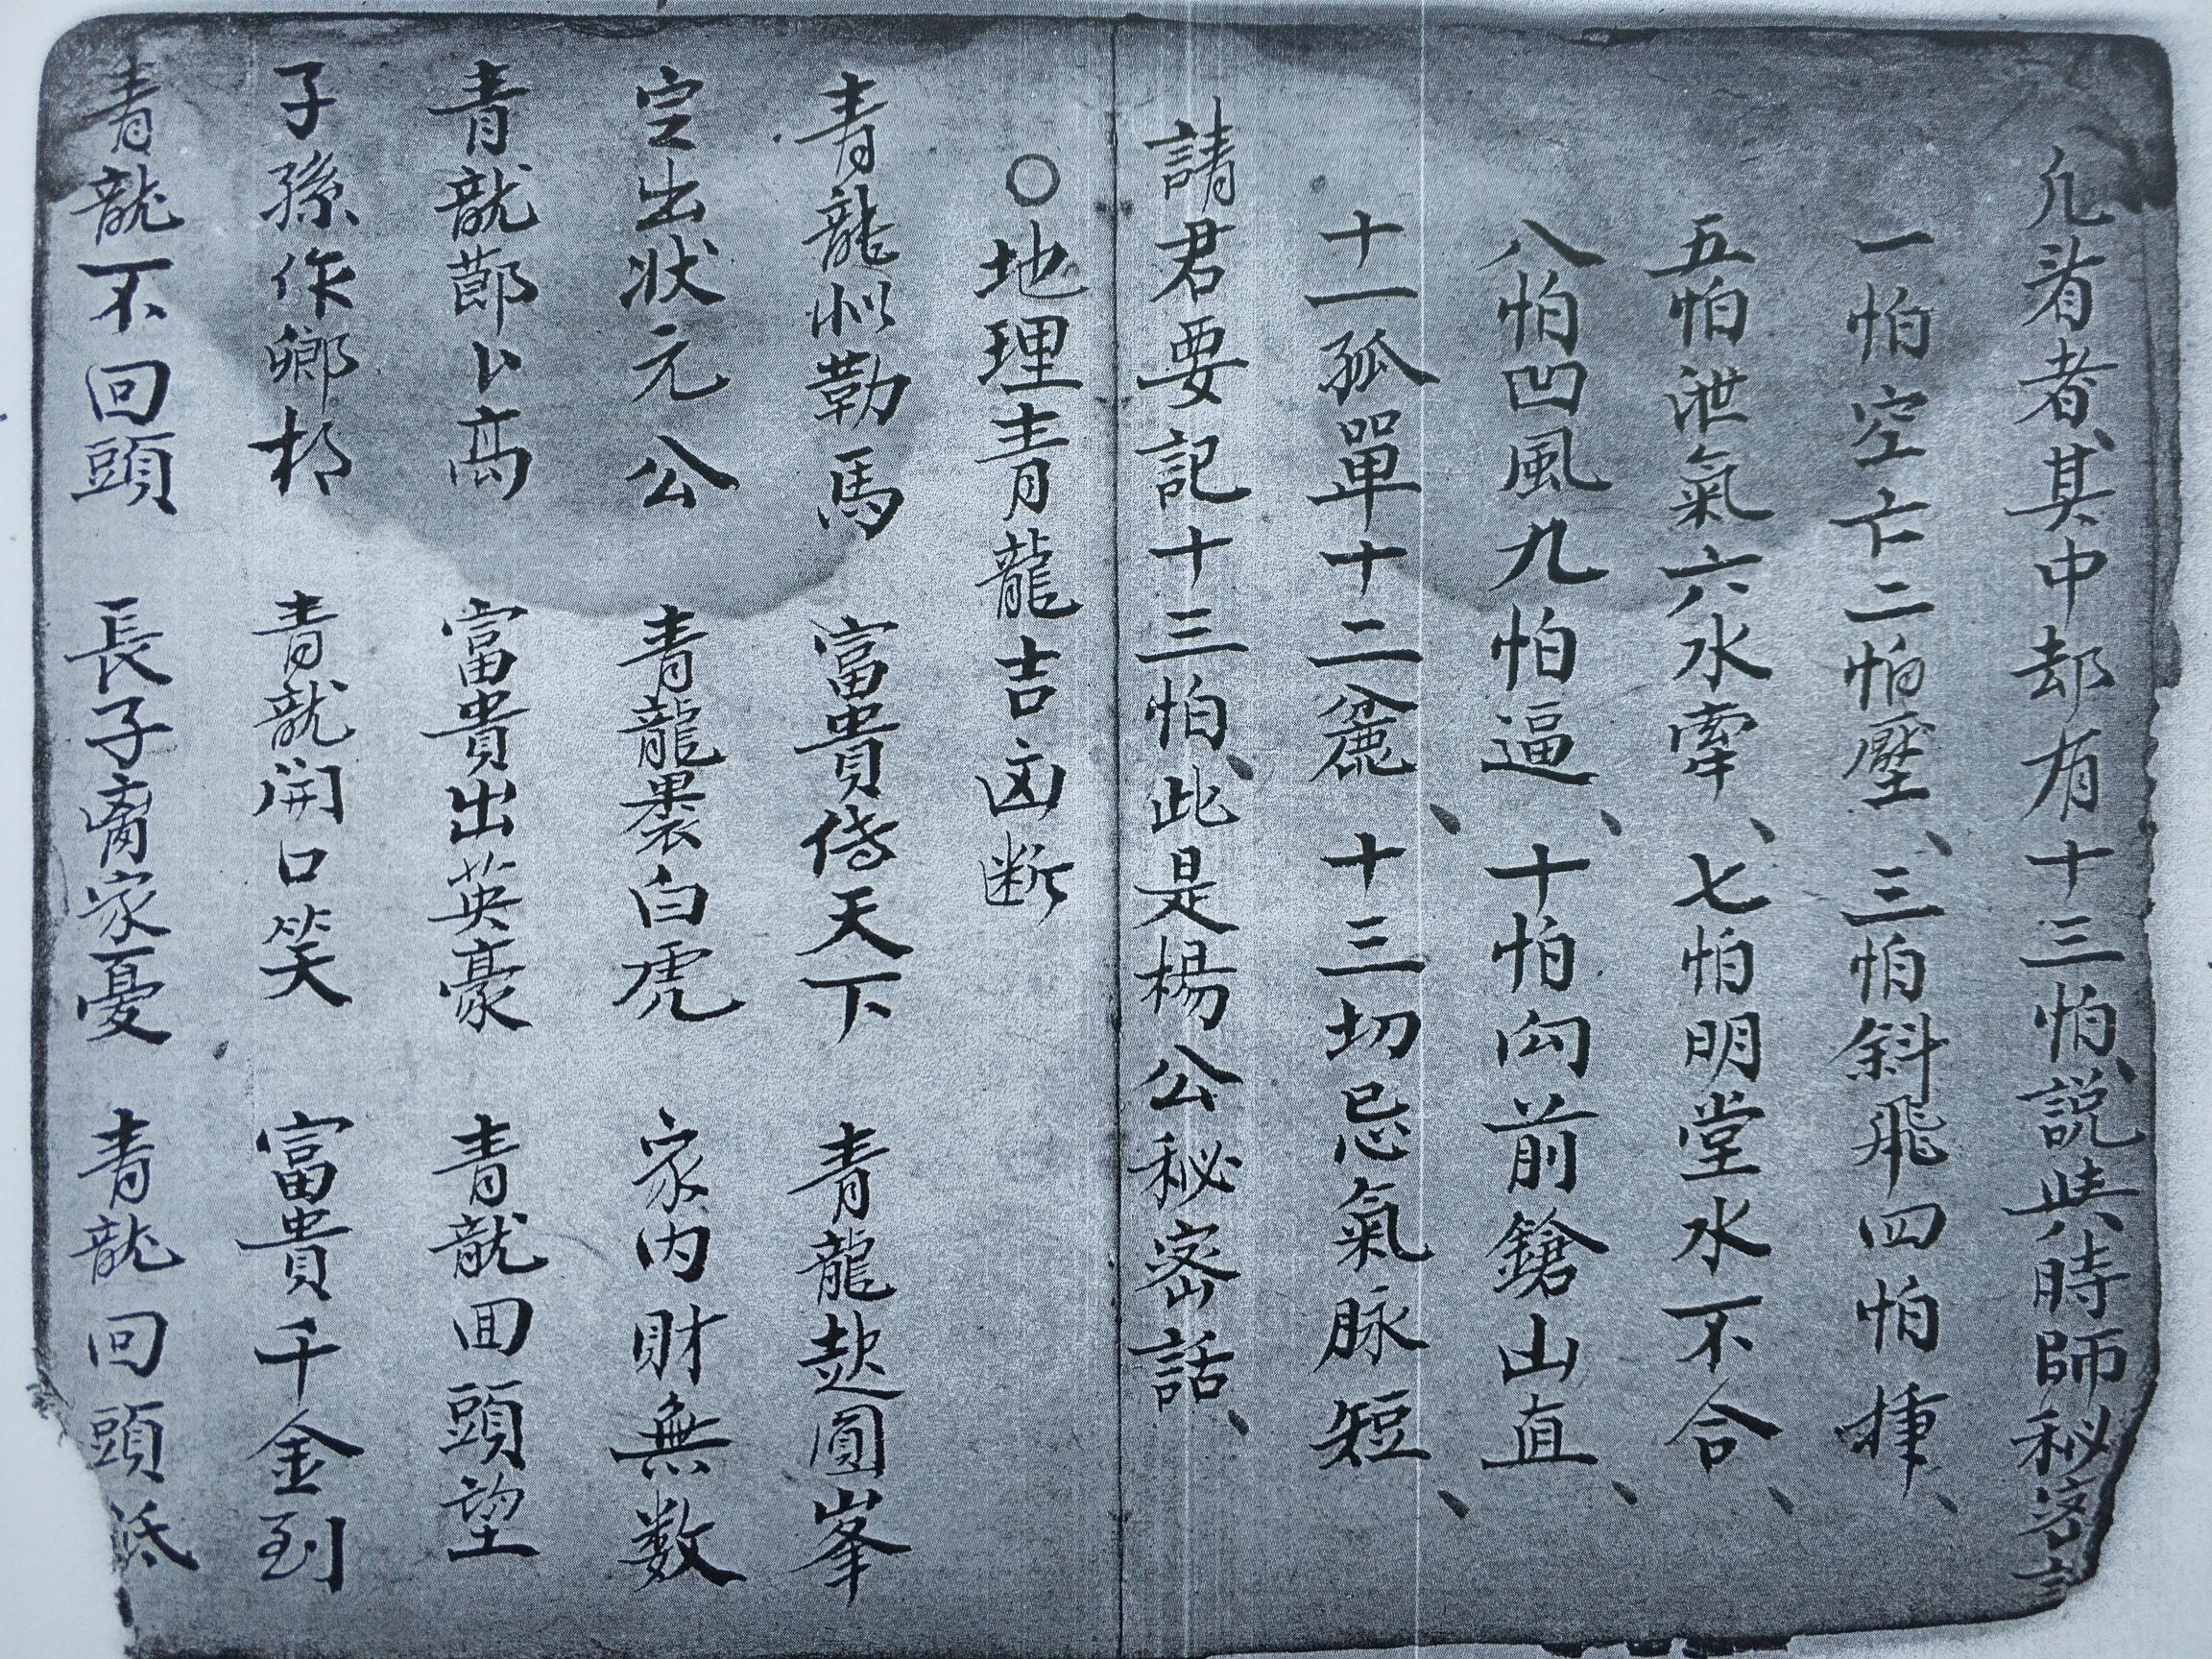 凢着者其中却有十三怕說與時師秘密
一怕空亡二怕壓、三怕斜飛四怕捶、
五怕泄氣六水牽、七怕明堂水不合、
八怕凹風九怕逼、十怕向前鎗山直、
十一孤單十二麄、十三切忌氣脉短、
請君要記十三怕、此是楊公秘密話、
〇地理青龍吉凶断
青龍似勒馬 富貴傳天下 青龍起圓峯
定出状元公 青龍裹白虎 家内財無数
青龍節卜高 富貴出英豪 青龍回頭望
子孫作鄉 青龍開口笑 富貴千金到
青龍不回頭 長子离家憂 青龍回頭